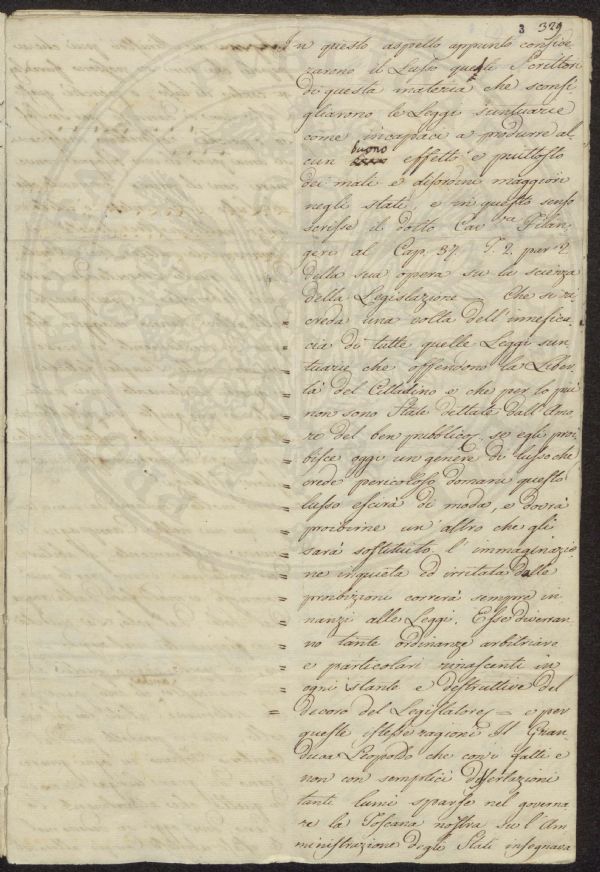 3 329
In questo aspetto appunto conside
rarono il Lusso quelli Scrittori
di questa materia che sconsi
gliarono le Leggi suntuarie
come incapaci a produrre al
cun buono effetto e piuttosto
dei mali e disordini maggiori
negli stati, e in questo senso
scrisse il dotto Cav.re Filan
geri al Cap. 37. T. 2. par. 2
della sua opera su la scienza
della Legislazione = Che si ri
= creda una volta dell'ineffica
= cia di tutte quelle Leggi sun
= tuarie che offendono la Liber
= tà del Cittadino e che per lo più
= non sono State dettate dall'Amo
= re del ben pubblico. se egli proi
= bisce oggi un genere di lusso che
= crede pericoloso domani questo
= lusso escirà di moda, e dovrà
= proibirne un'altro che gli
= sarà sostituito l'immaginazio
= ne inquieta ed irritata dalle
= proibizioni correrà sempre in
= nanzi alle Leggi. Esse diveran
= no tante ordinanze arbitrarie
= e particolari rinascenti in
= ogni istante e destruttive del
= decoro del Legislatore = e per
queste istesse ragioni Il Gran
duca Leopoldo che con i fatti e
non con semplici dissertazioni
tanti lumi sparse nel governa
re la Toscana nostra su l'Am
ministrazione degli Stati insegnava